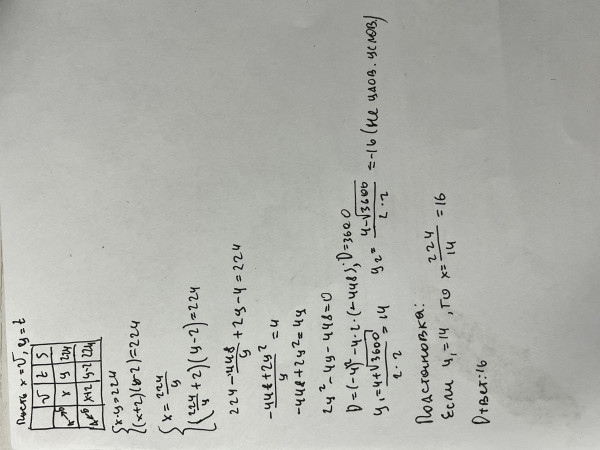 Пусть x = v, y = t
v t S
A→B x y 224
A→B x+2 y-2 224
{ x·y = 224
(x+2)(y-2) = 224
{ x = 224/y
(224/y + 2)(y-2) = 224
224 - 448/y + 2y - 4 = 224
-448+2y²/y = 4
-448 + 2y² = 4y
2y² - 4y - 448 = 0
D = (-4)² - 4·2·(-448); D = 3600
y₁ = 4+√3600/2·2 = 14 y₂ = 4-√3600/2·2 = -16 (не удов. услов)
Подстановка:
Если y₁ = 14, то x = 224/14 = 16
Ответ: 16